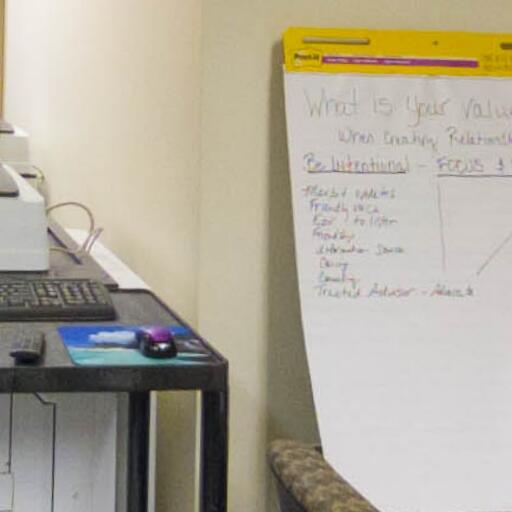 Post-it
What is Your Valu
When Creating Relationsh
Be Intentional - FOCUS &
Market updates
Friendly voice
Ear to listen
Friendly
Information Source
Caring
Trusted Advisor - Advocate